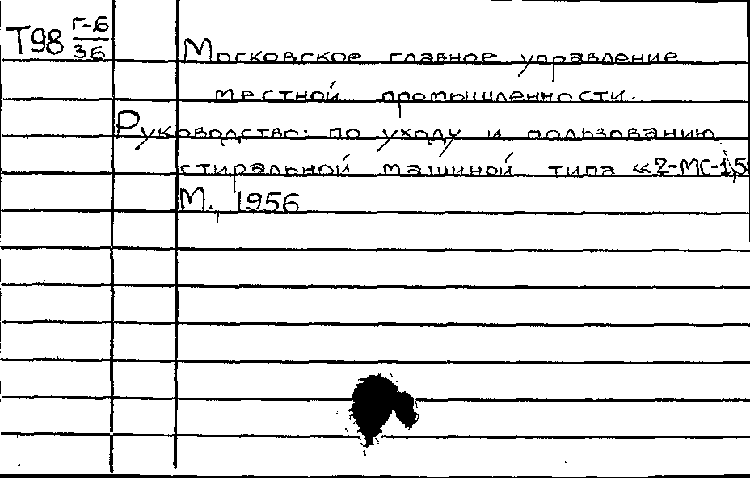 Т98 Г-6/36
Московское главное управление
местной промышленности.
Руководство по уходу и пользованию
стиральной машиной типа «2-МС-1,5
М., 1956